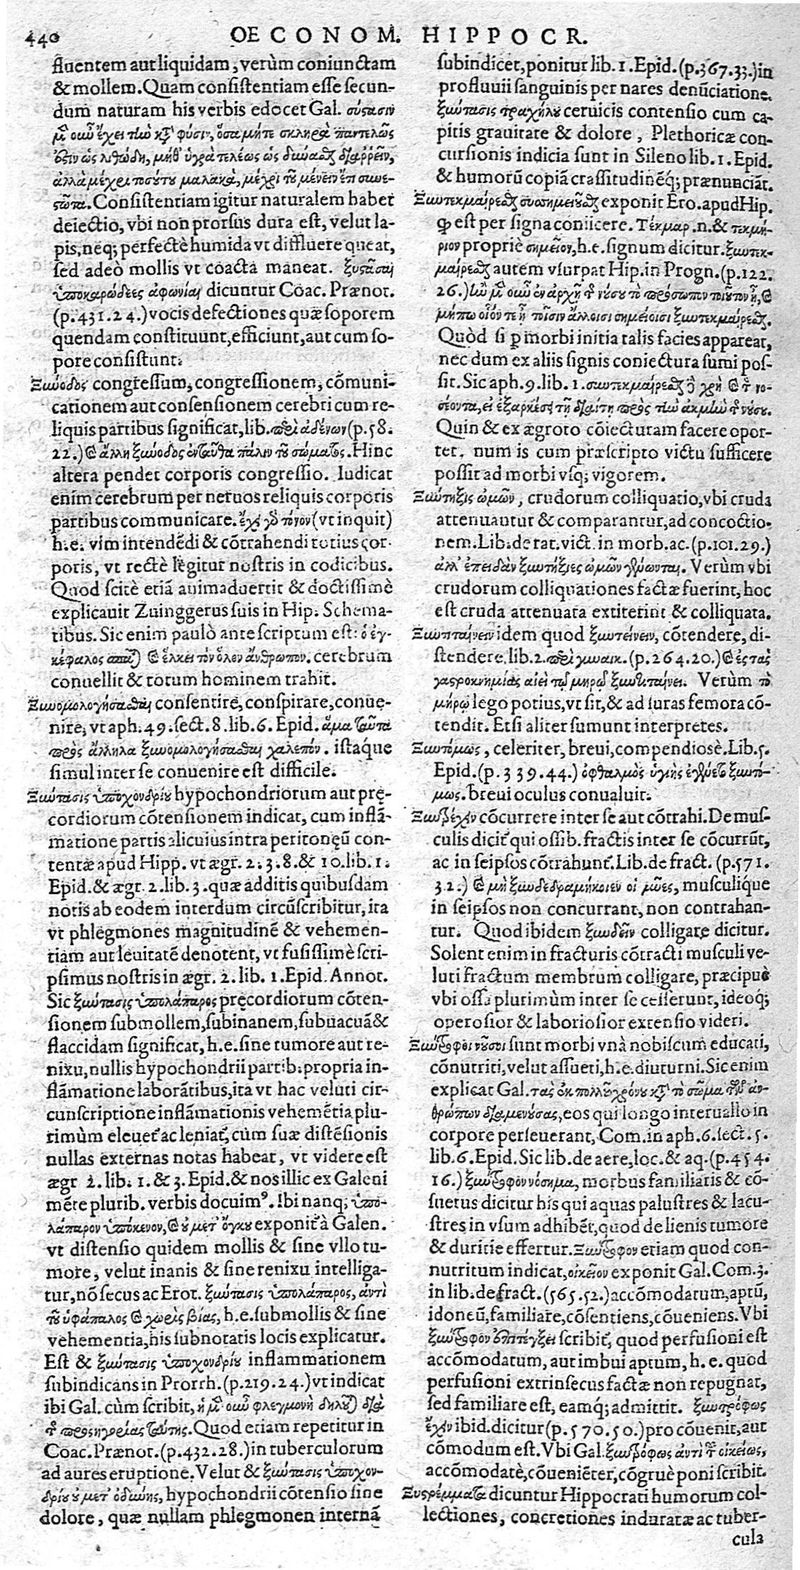 440 OECONOM. HIPPOCR.
fluentem aut liquidam, verùm coniunctam
& mollem. Quam consistentiam esse secun-
dum naturam his verbis edocet Gal. σύςασιν
μϟ οιῶ ἔχει τίω κϟ φύσιν, ὅσα μήτε σκληρὰ παντελῶς
ὅλιν ὡς λιθώδη, μήθ᾽ ὑγρὰ τελέως ὡς
ἀλλὰ μέχρι ποσούτου μαλακὰ, μέχρι τοῦ μένειν
Consistentiam igitur naturalem habet
deiectio, vbi non prorsus dura est, velut la-
pis, neq; perfectè humida vt diffluere queat,
sed adeò mollis vt coacta maneat. ξυςᾶσαι
ὑποκαρώδεες ἀφωνίαι dicuntur Coac. Prænot.
(p.431.24.) vocis defectiones quæ soporem
quendam constituunt, efficiunt, aut cum so-
pore consistunt.
Ξιώοδος congressum, congressionem, cōmuni-
cationem aut consensionem cerebri cum re-
liquis partibus significat, lib. περὶ ἀδένων (p.58.
22.) & ἄλλη ξιώοδος ἐνταῦθα πάλιν τοῦ σώματος. Hinc
altera pendet corporis congressio. Iudicat
enim cerebrum per neruos reliquis corporis
partibus communicare. ἔχει τόνον (vt inquit)
h.e. vim intendēdi & cōtrahendi totius cor-
poris, vt rectè legitur nostris in codicibus.
Quod scitè etiā animaduertit & doctissimè
explicauit Zuinggerus suis in Hip. Schema-
tibus. Sic enim paulò ante scriptum est: ὁ ἐγ-
κέφαλος & ἕλκει τὸν ὅλον ἄνθρωπον. cerebrum
conuellit & totum hominem trahit.
Ξιωομολογήσασθαι consentire, conspirare, conue-
nire, vt aph. 49. sect. 8. lib. 6. Epid. ἅμα ταῦτα
πρὸς ἄλληλα ξιωομολογήσασθαι χαλεπόν. istæque
simul inter se conuenire est difficile.
Ξιώτασις ὑποχονδρίου hypochondriorum aut prę-
cordiorum cōtensionem indicat, cum inflā-
matione partis alicuius intra peritonęū con-
tentæ apud Hipp. vt ægr. 2. 3. 8. & 10. lib. 1.
Epid. & ægr. 2. lib. 3. quæ additis quibusdam
notis ab eodem interdum circūscribitur, ita
vt phlegmones magnitudinē & vehemen-
tiam aut leuitatē denotent, vt fusissimè scri-
psimus nostris in ægr. 2. lib. 1. Epid. Annot.
Sic ξιώτασις ὑπολάπαρος pręcordiorum cōten-
sionem submollem, subinanem, subuacuā &
flaccidam significat, h.e. sine tumore aut re-
nixu, nullis hypochondrii partib. propria in-
flāmatione laborātibus, ita vt hac veluti cir-
cunscriptione inflāmationis vehemētia plu-
rimùm eleuet᾽ ac leniat᾽, cùm suæ distēsionis
nullas externas notas habeat, vt videre est
ægr 2. lib. 1. & 3. Epid. & nos illic ex Galeni
mēte plurib. verbis docuim⁹. Ibi nanq; ὑπο-
λάπαρον ὑπόκενον, & ὀυ μετ᾽ ὄγκου exponit᾽ à Galen.
vt distensio quidem mollis & sine vllo tu-
more, velut inanis & sine renixu intelliga-
tur, nō secus ac Erot. ξιώτασις ὑπολάπαρος, ἀντὶ
τοῦ ὑφάπαλος & χωρὶς βίας, h.e. submollis & sine
vehementia, his subnotatis locis explicatur.
Est & ξιώτασις ὑποχονδρίου inflammationem
subindicans in Prorrh. (p.219.24.) vt indicat
ibi Gal. cùm scribit, ἡ μϟ οιῶ φλεγμονὴ δηλοῦται
Quod etiam repetitur in
Coac. Prænot. (p.432.28.) in tuberculorum
ad aures eruptione. Velut & ξιώτασις ὑποχον-
δρίου ὀυ μετ᾽ ὀδύνης, hypochondrii cōtensio sine
dolore, quæ nullam phlegmonen internā
subindicet, ponitur lib. 1. Epid. (p.367.33.) in
profluuii sanguinis per nares denūciatione.
ξιώτασις τραχήλου ceruicis contensio cum ca-
pitis grauitate & dolore, Plethoricæ con-
cursionis indicia sunt in Sileno lib. 1. Epid.
& humorū copiā crassitudinēq; prænunciāt.
Ξιωτεκμαίρεσθαι συσσημειοῦσθαι exponit Ero. apud Hip.
qđ est per signa coniicere. Τέκμαρ. n. & τεκμή-
ριον propriè σημεῖον, h.e. signum dicitur. ξιωτεκ-
μαίρεσθαι autem vsurpat Hip. in Progn. (p.122.
26.) ἰὼ μϟ οιῶ ἐν ἀρχῇ τ̃ νύσου τὸ πρόσωπον τοιοῦτον ᾖ, &
μήπω οἷόν τε ᾖ τοῖσιν ἄλλοισι σημείοισι ξιωτεκμαίρεσθαι.
Quòd si p morbi initia talis facies appareat,
nec dum ex aliis signis coniectura sumi pos-
sit. Sic aph. 9. lib. 1. σιωτεκμαίρεσθαι ὃ χρὴ & τ̃ νο-
σέοντα, εἰ ἐξαρκέσει τῇ διαίτῃ πρὸς τίω ἀκμίω τ̃ νύσου.
Quin & ex ægroto cōiecturam facere opor-
tet. num is cum præscripto victu sufficere
possit ad morbi vsq; vigorem.
Ξιώτηξις ὠμῶν, crudorum colliquatio, vbi cruda
attenuantur & comparantur, ad concoctio-
nem. Lib. de rat. vict. in morb. ac. (p.101.29.)
ἀλλ᾽ ἐπειδὰν ξιωτήξιες ὠμῶν γένωνται. Verùm vbi
crudorum colliquationes factæ fuerint, hoc
est cruda attenuata extiterint & colliquata.
Ξιωτιταίνειν idem quod ξιωτείνειν, cōtendere, di-
stendere. lib. 2. περὶ γυναικ. (p.264.20.) & ἐς τὰς
γαςροκνημίας αἰεὶ τοῦ μηροῦ ξιωτιταίνει. Verùm τὸ
μήρου lego potius, vt sit, & ad suras femora cō-
tendit. Etsi aliter sumunt interpretes.
Ξιωτόμως, celeriter, breui, compendiosè. Lib. 5.
Epid. (p.339.44.) ὀφθαλμὸς ὑγιὴς ἐγένετο ξιωτό-
μως. breui oculus conualuit.
Ξιωτρέχειν cōcurrere inter se aut cōtrahi. De mus-
culis dicit᾽ qui ossib. fractis inter se cōcurrūt,
ac in seipsos cōtrahunt᾽. Lib. de fract. (p.571.
32.) & μὴ ξιωδεδραμήκωσιν οἱ μύες, musculique
in seipsos non concurrant, non contrahan-
tur. Quod ibidem ξιωδεῖν colligare dicitur.
Solent enim in fracturis cōtracti musculi ve-
luti fractum membrum colligare, præcipuè
vbi ossa plurimùm inter se cesserunt, ideoq;
operosior & laboriosior extensio videri.
Ξιώτροφοι νοῦσοι sunt morbi vnà nobiscum educati,
cōnutriti, velut assueti, h.e. diuturni. Sic enim
explicat Gal. τὰς ἐκ πολλοῦ χρόνου κϟ τὸ σῶμα τῶν ἀν-
θρώπων διαμενούσας, eos qui longo interuallo in
corpore perseuerant, Com. in aph. 6. sect. 5.
lib. 6. Epid. Sic lib. de aere, loc. & aq. (p.454.
16.) ξιώτροφον νόσημα, morbus familiaris & cō-
suetus dicitur his qui aquas palustres & lacu-
stres in vsum adhibēt, quod de lienis tumore
& duritie effertur. Ξιώτροφον etiam quod con-
nutritum indicat, οἰκεῖον exponit Gal. Com. 3.
in lib. de fract. (565.52.) accōmodatum, aptū,
idoneū, familiare, cōsentiens, cōueniens. Vbi
ξιώτροφον ἐπιτέγξει scribit᾽, quod perfusioni est
accōmodatum, aut imbui aptum, h.e. quod
perfusioni extrinsecus factæ non repugnat,
sed familiare est, eamq; admittit. ξιωτρόφως
ἔχειν ibid. dicitur (p.570.50.) pro cōuenit, aut
cōmodum est. Vbi Gal. ξιωτρόφως ἀντὶ τ̃ οἰκείως,
accōmodatè, cōueniēter, cōgruè poni scribit.
Ξυςρέμματα dicuntur Hippocrati humorum col-
lectiones, concretiones induratæ ac tuber-
cula